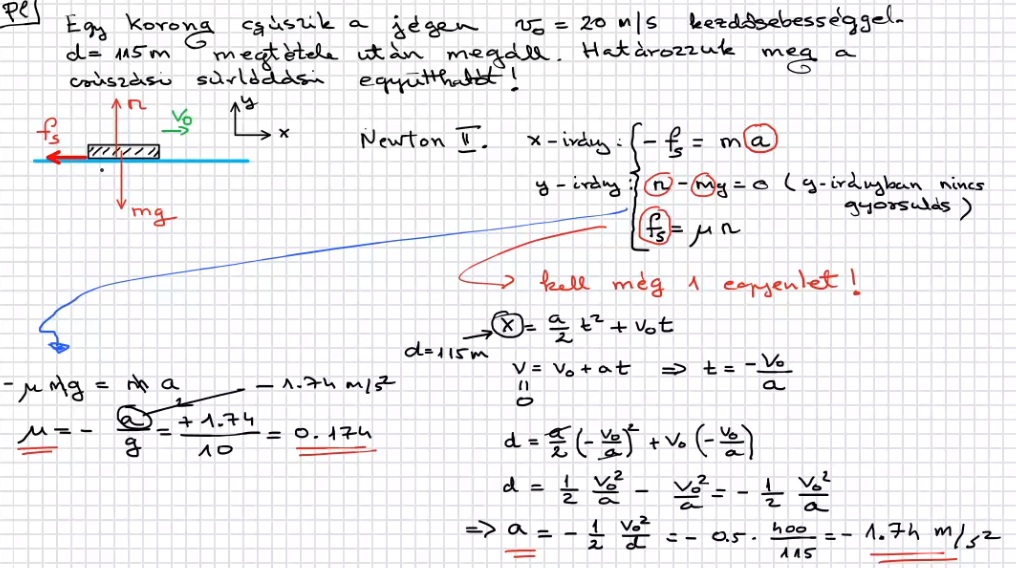 Pl)
Egy korong csúszik a jégen v₀ = 20 m/s kezdősebességgel.
d = 115 m megtétele után megáll. Határozzuk meg a
csúszási súrlódási együtthatót!
n
f_s
v₀
y
x
mg
Newton II. x-irány: -f_s = m a
y-irány: n - mg = 0 (y-irányban nincs
gyorsulás)
f_s = μ n
→ kell még 1 egyenlet!
x = a/2 t² + v₀t
d = 115 m
v = v₀ + at ⇒ t = -v₀/a
=
0
-μ mg = m a
- 1.74 m/s²
μ = - a/g = +1.74/10 = 0.174
d = a/2 (-v₀/a)² + v₀ (-v₀/a)
d = 1/2 v₀²/a - v₀²/a = - 1/2 v₀²/a
=> a = - 1/2 v₀²/d = - 0.5 · 400/115 = - 1.74 m/s²